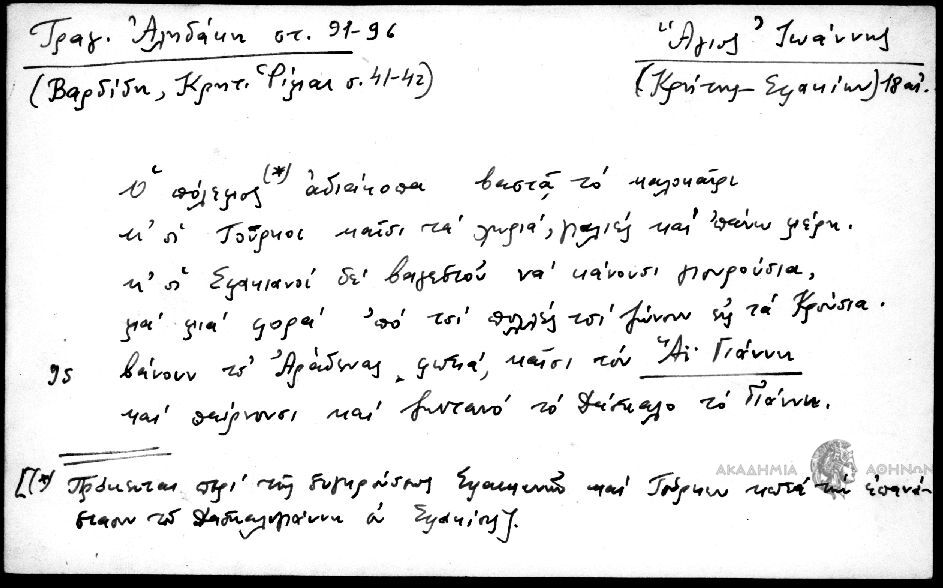 Τραγ. Ἀληδάκη στ. 91-96
(Βαρδίδη, Κρητ. Ρίμαι σ. 41-42)
Ἅγιος Ἰωάννης
(Κρήτης - Σφακίων) 18 αἰ.
Ὁ πόλεμος (*) ἀδιάκοπα βαστᾶ τὸ καλοκαῖρι
κ' οἱ Τοῦρκοι καῖσι τὰ χωριά, μαλιές καὶ ἐπάνω μέρη.
κ' οἱ Σφακιανοὶ δὲ βαγεστοῦ νὰ κάνουσι γιουρούσια,
μὰ μιὰ φορὰ ἀπὸ τσὶ πολλὲς τσὶ ζώνουν εἰς τὰ Κρούσια.
95 βάνουν τσ' Ἀράδενας φωτιά, καῖσι τὸν Ἅϊ Γιάννη
καὶ παίρνουσι καὶ ζωντανὸ τὸ Δάσκαλο τὸ Γιάννη.
[(*) Πρόκειται περὶ τῆς συγκρούσεως Σφακιανῶν καὶ Τούρκων κατὰ τὴν ἐπανά-
στασιν τοῦ Δασκαλογιάννη ἐν Σφακίοις].
ΑΚΑΔΗΜΙΑ ΑΘΗΝΩΝ